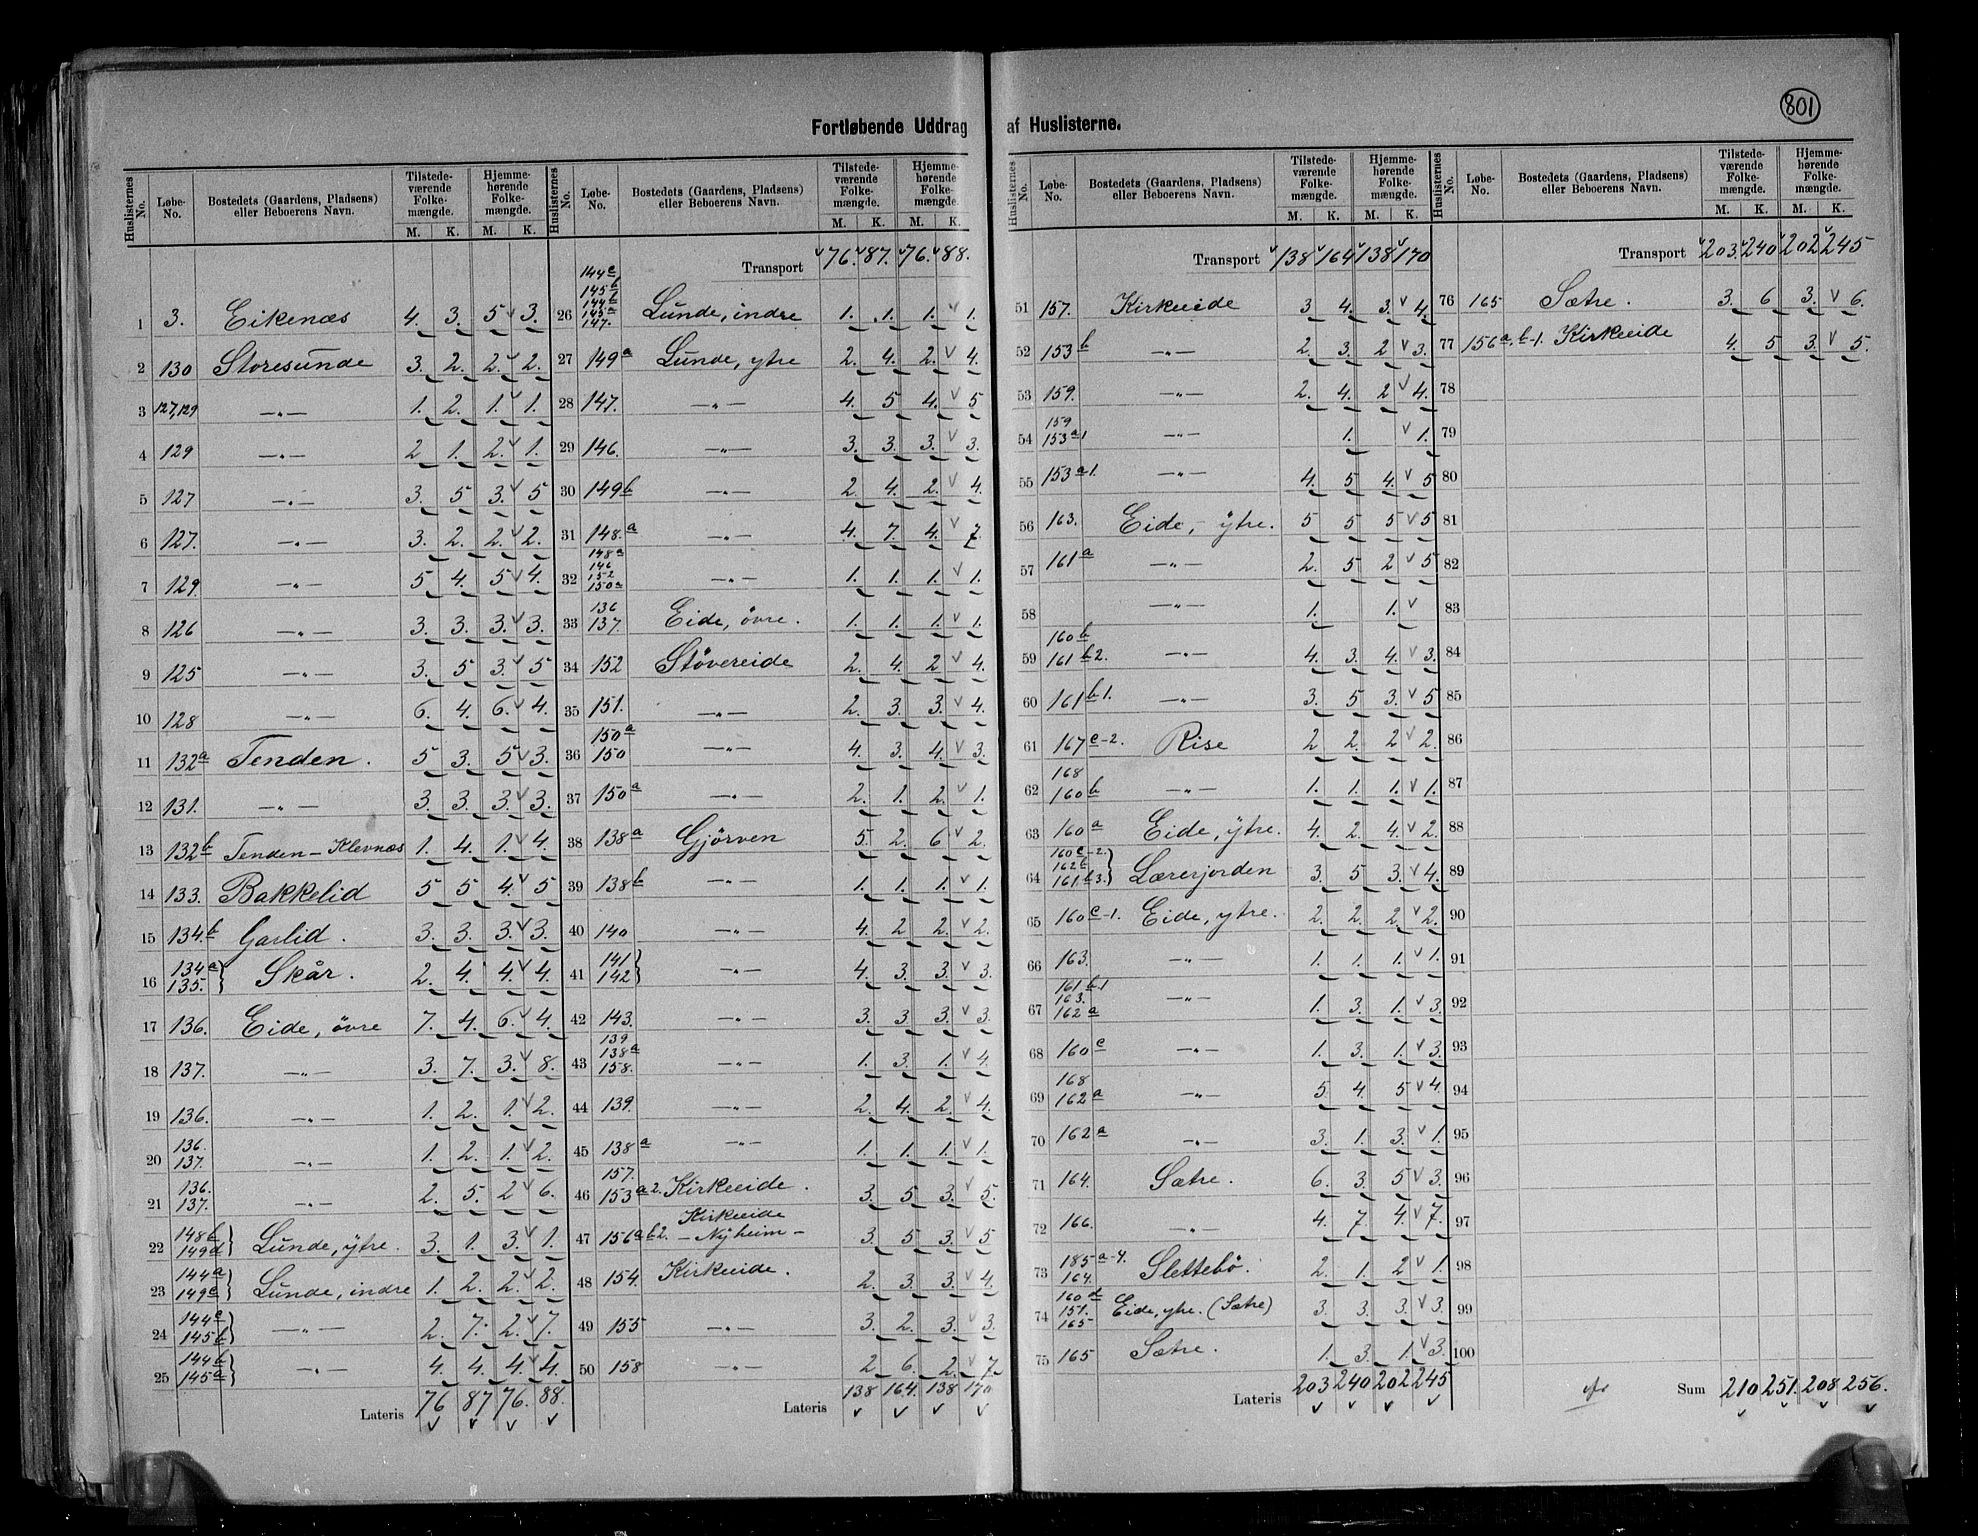 801
Fortløbende Uddrag af Huslisterne.
Huslisternes No. | Løbe-No. | Bostedets (Gaardens, Pladsens) eller Beboerens Navn. | Tilstede-værende Folke-mængde. M. K. | Hjemme-hørende Folke-mængde. M. K.
1 3. Eikenæs 4. 3. 5 3.
2 130 Storesunde 3. 2. 2. 2.
3 127,129 —„— 1. 2. 1. 1.
4 129 —„— 2 1. 2. 1.
5 127 —„— 3. 5 3. 5
6 127. —„— 3. 2. 2. 2.
7 129. —„— 5 4. 5 4.
8 126 —„— 3. 3. 3. 3.
9 125 —„— 3. 5 3. 5
10 128 —„— 6. 4. 6. 4.
11 132a Tenden. 5 3. 5 3.
12 131. —„— 3. 3. 3. 3.
13 132b Tenden – Klevnæs 1. 4. 1. 4.
14 133. Bakkelid 5 5 4. 5
15 134.b Garlid. 3. 3. 3. 3.
16 134a 135. } Skår. 2. 4. 4. 4.
17 136. Eide, övre 7. 4. 6. 4.
18 137. —„— 3. 7. 3. 8.
19 136. —„— 1. 2. 1. 2.
20 136. 137. —„— 1. 2. 1. 2.
21 136. 137. —„— 2. 5. 2 6.
22 148b 149d } Lunde, ytre. 3. 1. 3. 1.
23 144a 149c } Lunde, indre 1. 2. 2. 2.
24 144c 145b } —„— 2. 7. 2. 7.
25 144b 145a } —„— 4. 4. 4. 4.
Lateris 76 87 76. 88.
Huslisternes No. | Løbe-No. | Bostedets (Gaardens, Pladsens) eller Beboerens Navn. | Tilstede-værende Folke-mængde. M. K. | Hjemme-hørende Folke-mængde. M. K.
Transport 76. 87. 76. 88.
26 144c 145b 144b 145a 147. Lunde, indre 1. 1. 1. 1.
27 149a Lunde, ytre 2. 4. 2. 4.
28 147. —„— 4. 5 4. 5
29 146. —„— 3. 3. 3. 3.
30 149b —„— 2. 4. 2. 4.
31 148.a —„— 4. 7. 4. 7.
32 148a 146 152 150a —„— 1. 1. 1. 1.
33 136 137. Eide, övre. 1. 1. 1. 1.
34 152 Stövereide 2. 4. 2 4.
35 151. —„— 2. 3. 3. 4.
36 150a 150 —„— 4. 3. 4. 3.
37 150a —„— 2. 1. 2. 1.
38 138a Gjörven 5. 2. 6 2.
39 138b —„— 1. 1. 1. 1.
40 140 —„— 4. 2 2. 2.
41 141 142 } —„— 4. 3. 3. 3.
42 143. —„— 3. 3. 3. 3.
43 139 138a 158. —„— 1. 3. 1. 4
44 139. —„— 2. 4. 2. 4.
45 138a —„— 1. 1. 1. 1.
46 157. 153a2. Kirkeeide. 3. 5 3. 5.
47 156a b2. Kirkeeide – Nyheim – 3. 5 3. 5
48 154. Kirkeeide. 2 3. 3. 4.
49 155 —„— 3. 2. 3. 3.
50 158 —„— 2 6. 2. 7.
Lateris 138 164. 138 170
Huslisternes No. | Løbe-No. | Bostedets (Gaardens, Pladsens) eller Beboerens Navn. | Tilstede-værende Folke-mængde. M. K. | Hjemme-hørende Folke-mængde. M. K.
Transport 138 164 138 170
51 157. Kirkeeide 3 4. 3. 4.
52 153b —„— 2. 3. 2 3.
53 159. —„— 2. 4. 2 4.
54 159 153a1 —„— 1. 1.
55 153a1. —„— 4. 5 4. 5
56 163. Eide, ÿtre. 5 5 5 5
57 161a —„— 2. 5 2 5
58 —„— 1. 1.
59 160b 161b2. —„— 4. 3. 4. 3.
60 161b1. —„— 3. 5 3. 5
61 167c-2. Rise 2 2. 2 2.
62 168 160b —„— 1. 1. 1. 1.
63 160a Eide, ÿtre. 4. 2. 4. 2.
64 160c-2. 162b 161b3. } Lærerjorden 3. 5 3. 4.
65 160c-1. Eide, ytre. 2. 2. 2. 2.
66 163. —„— 1. 1. 1. 1.
67 161b1 163. 162a —„— 1. 3. 1. 3.
68 160c —„— 1. 3. 1. 3.
69 168 162a —„— 5 4. 5 4.
70 162a —„— 3. 1. 3. 1.
71 164. Sætre. 6. 3. 5 3.
72 166. —„— 4. 7. 4. 7.
73 185a-4. 164. Slettebö. 2. 1. 2 1.
74 160d 151. 165 Eide, ytre. (Sætre) 3. 3. 3. 3.
75 165 Sætre. 1. 3. 1. 3.
Lateris 203 240 202 245
Huslisternes No. | Løbe-No. | Bostedets (Gaardens, Pladsens) eller Beboerens Navn. | Tilstede-værende Folke-mængde. M. K. | Hjemme-hørende Folke-mængde. M. K.
Transport 203. 240 202 245
76 165 Sætre. 3. 6 3. 6.
77 156a, b-1. Kirkeeide 4. 5 3. 5.
78
79
80
81
82
83
84
85
86
87
88
89
90
91
92
93
94
95
96
97
98
99
100
Sum 210 251. 208 256.